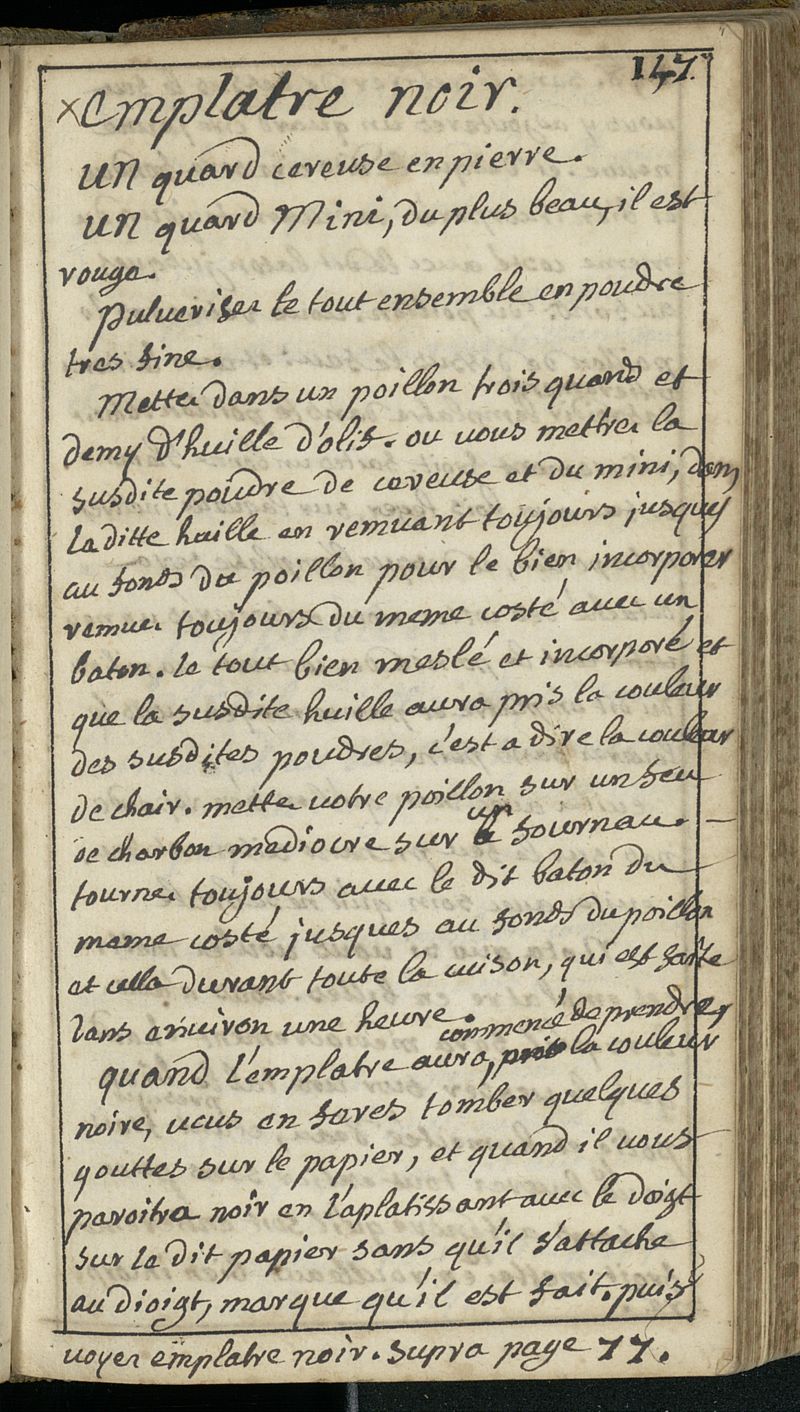 147.
×emplatre noir.
un quard cereuse en pierre.
un quard Mini, du plus beau, il est
rouge.
Pulueriser le tout ensemble en poudre
tres fine.
Mettez dans un poillon trois quard et
demy d'huille d'olif. ou vous mettrez la
susdite poudre de cereuse et du mini, dans
la ditte huille en remuant toujours jusques
au fonds du poillon pour le bien incorporer
remuez toujours du meme costé avec un
baton. le tout bien meslé et incorporé et
que la susdite huille aura pris la couleur
des susdites poudres, c'est a dire la couleur
de chair. mettez votre poillon sur un feu
de charbon mediocre sur un fournau. -
tournez toujours avec le dit baton du
meme costé jusques au fonds du poillon
et cella durant toute la cuison, qui est faite
dans enuiron une heure.
commencé de prendre
quand l'emplatre aura, la couleur
noire, vous en feres tomber quelques
gouttes sur le papier, et quand il vous
paroitra noir en l'aplatissant avec le doigt
sur le dit papier sans qu'il s'attache
au dioigt, marque qu'il est fait. puis
voyez emplatre noir. supra page 77.